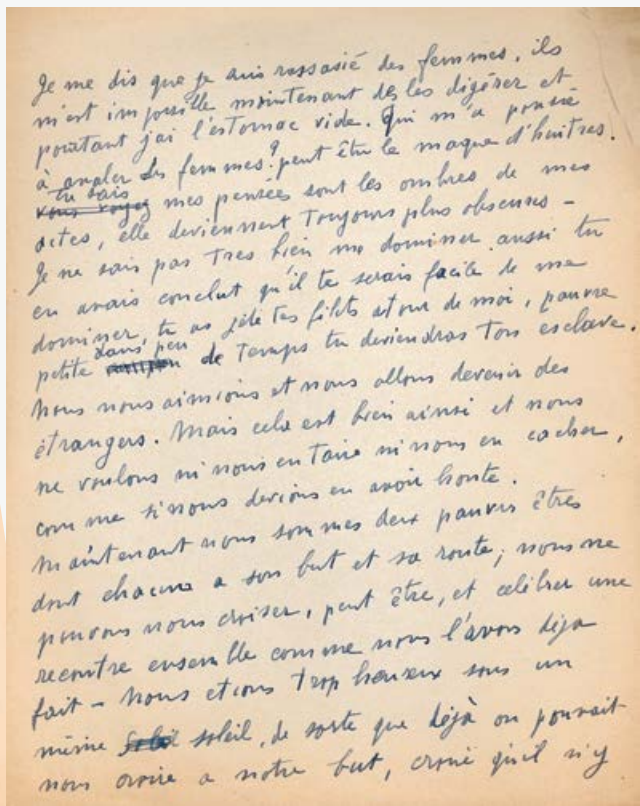 Je me dis que je suis rassasié des femmes, ils
m'est impossible maintenant de les digérer et
pourtant j'ai l'estomac vide. Qui m'a poussé
à avaler des femmes? peut être le manque d'huitres.
tu sais
vous voyez mes pensées sont les ombres de mes
actes, elle deviennent toujours plus obscures -
Je ne sais pas tres bien me dominer aussi tu
en avais conclut qu'il te serais facile de me
dominer, tu as jeté tes filets autour de moi, pauvre
petite dans peu de temps tu deviendras ton esclave.
Nous nous aimions et nous allons devenir des
étrangers. Mais cela est bien ainsi et nous
ne voulons ni nous en taire ni nous en cacher,
comme si nous devions en avoir honte.
Maintenant nous sommes deux pauvres êtres
dont chacun a son but et sa route; nous ne
pouvons nous croiser, peut être, et célébrer une
recontre ensemble comme nous l'avons déja
fait - Nous etions trop heureux sous un
même soleil, de sorte que déjà on pouvait
nous croire a notre but, croire qu'il n'y